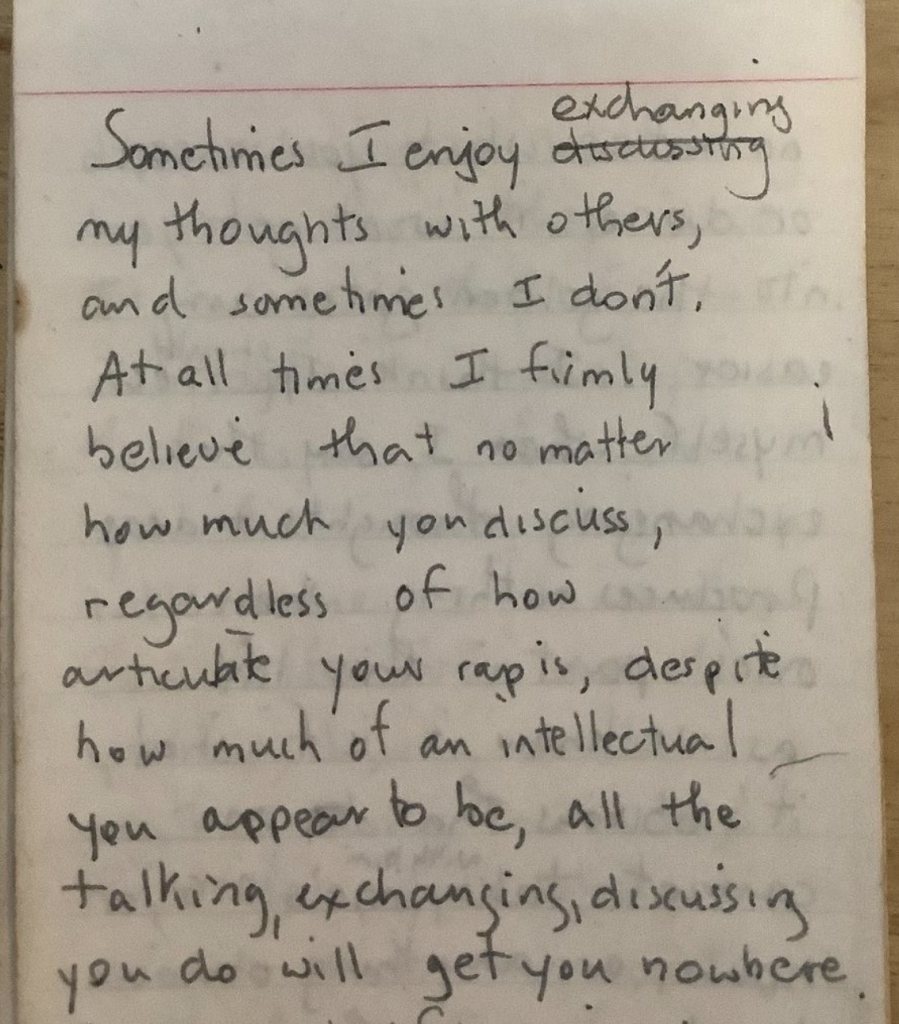 Sometimes I enjoy discussing exchanging
my thoughts with others,
and sometimes I don't.
At all times I firmly
believe that no matter
how much you discuss,
regardless of how
articulate your rap is, despite
how much of an intellectual
you appear to be, all the
talking, exchanging, discussing
you do will get you nowhere.